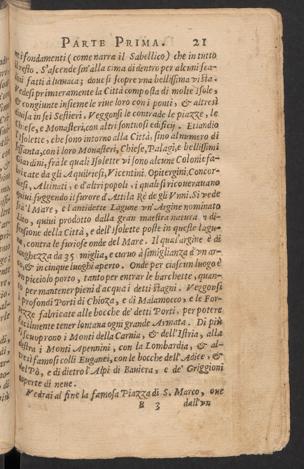 PARTE PRIMA. 21
ne i fondamenti (come narra il Sabellico) che in tutto
resto. S'ascende sin'alla cima di dentro per alcuni sca-
fatti à lumaca; doue si scopre vna bellissima vista.
Vedesi primieramente la Città composta di molte Isole,
& congiunte insieme le riue loro con i ponti, & altresì
diuisa in sei Sestieri. Veggonsi le contrade le piazze, le
Chiese, e Monasteri, con altri sontuosi edificij. Etiandio
Isolette, che sono intorno alla Città, sino al numero di
sessanta, con i loro Monasteri, Chiese, Palagi, e bellissimi
Giardini, frà le quali Isolette vi sono alcune Colonie fa-
bricate da gli Aquileiesi, Vicentini, Opitergini, Concor-
diesi, Altinati, e d'altri popoli, i quali si ricouerauano
quiui fuggendo il furore d'Attila Rè de gli Vnni. Si vede
il Mare, e l'antidette Lagune vn'Argine nominato
Lito, quiui prodotto dalla gran maestra natura à di-
fensione della Città, e dell'Isolette poste in queste lagu-
ne, contra le furiose onde del Mare. Il qual'argine è di
lunghezza da 35. miglia, e curuo à simiglianza d'vn ar-
co, & in cinque luoghi aperto. Onde per ciascun luogo è
vn picciolo porto, tanto per entrar le barchette, quan-
to per mantener pieni d'acqua i detti stagni. Veggonsi
i profondi Porti di Chioza, e di Malamocco, e le For-
tezze fabricate alle bocche de' detti Porti, per potere
facilmente tener lontana ogni grande Armata. Di più
si scuoprono i Monti della Carnia, & dell'Istria, alla
destra i Monti Apennini, con la Lombardia, & al-
tresì i famosi colli Euganei, con le bocche dell'Adice, &
del Pò, e di dietro l'Alpi di Bauiera, e de' Griggioni
coperte di neue.
Vedrai al fine la famosa Piazza di S. Marco, oue
B 3 dall'vn